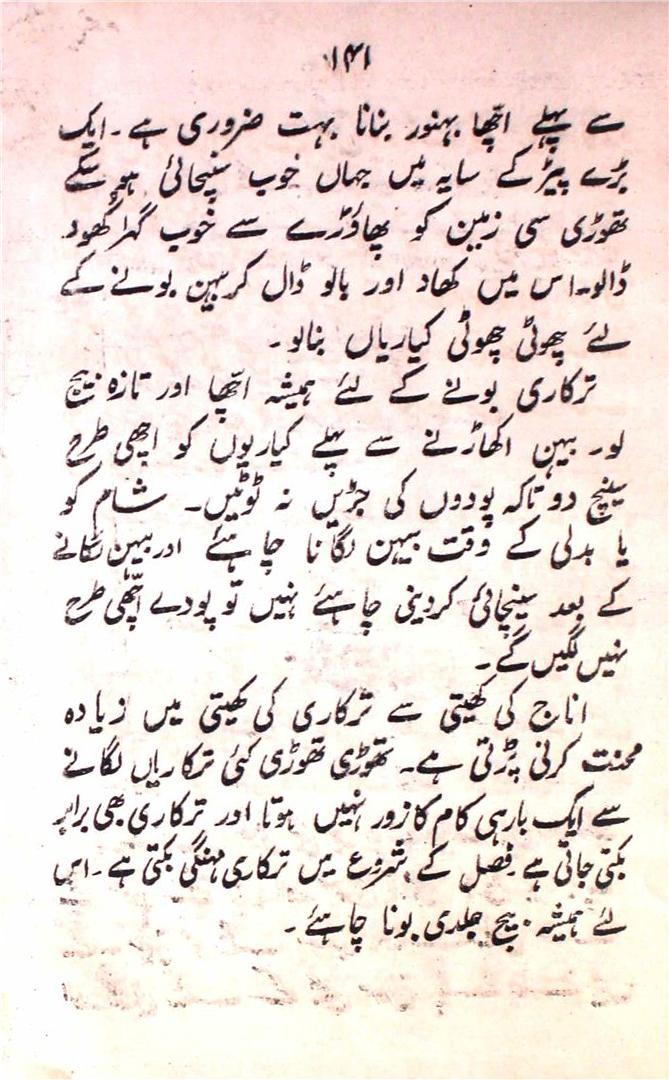 ۱۴۱
سے پہلے اچّھا بہنور بنانا بہت ضروری ہے۔ ایک
بڑے پیڑ کے سایہ میں جہاں خوب سنچائی ہو سکے
تھوڑی سی زمین کو پھاؤڑے سے خوب گہرا کھود
ڈالو۔ اس میں کھاد اور بالو ڈال کر بیہن بونے کے
لئے چھوٹی چھوٹی کیاریاں بنالو۔
ترکاری بونے کے لئے ہمیشہ اچّھا اور تازہ بیج
لو۔ بیہن اکھاڑنے سے پہلے کیاریوں کو اچھی طرح
سینچ دو تاکہ پودوں کی جڑیں نہ ٹوٹیں۔ شام کو
یا بدلی کے وقت بیہن لگانا چاہئے اور بیہن لگانے
کے بعد سینچائی کردینی چاہئے نہیں تو پودے اچّھی طرح
نہیں لگیں گے۔
اناج کی کھیتی سے ترکاری کی کھیتی میں زیادہ
محنت کرنی پڑتی ہے۔ تھوڑی تھوڑی کئی ترکاریاں لگانے
سے ایک بارہی کام کا زور نہیں ہوتا اور ترکاری بھی برابر
بکتی جاتی ہے فصل کے شروع میں ترکاری مہنگی بکتی ہے۔ اس
لئے ہمیشہ بیج جلدی بونا چاہئے۔